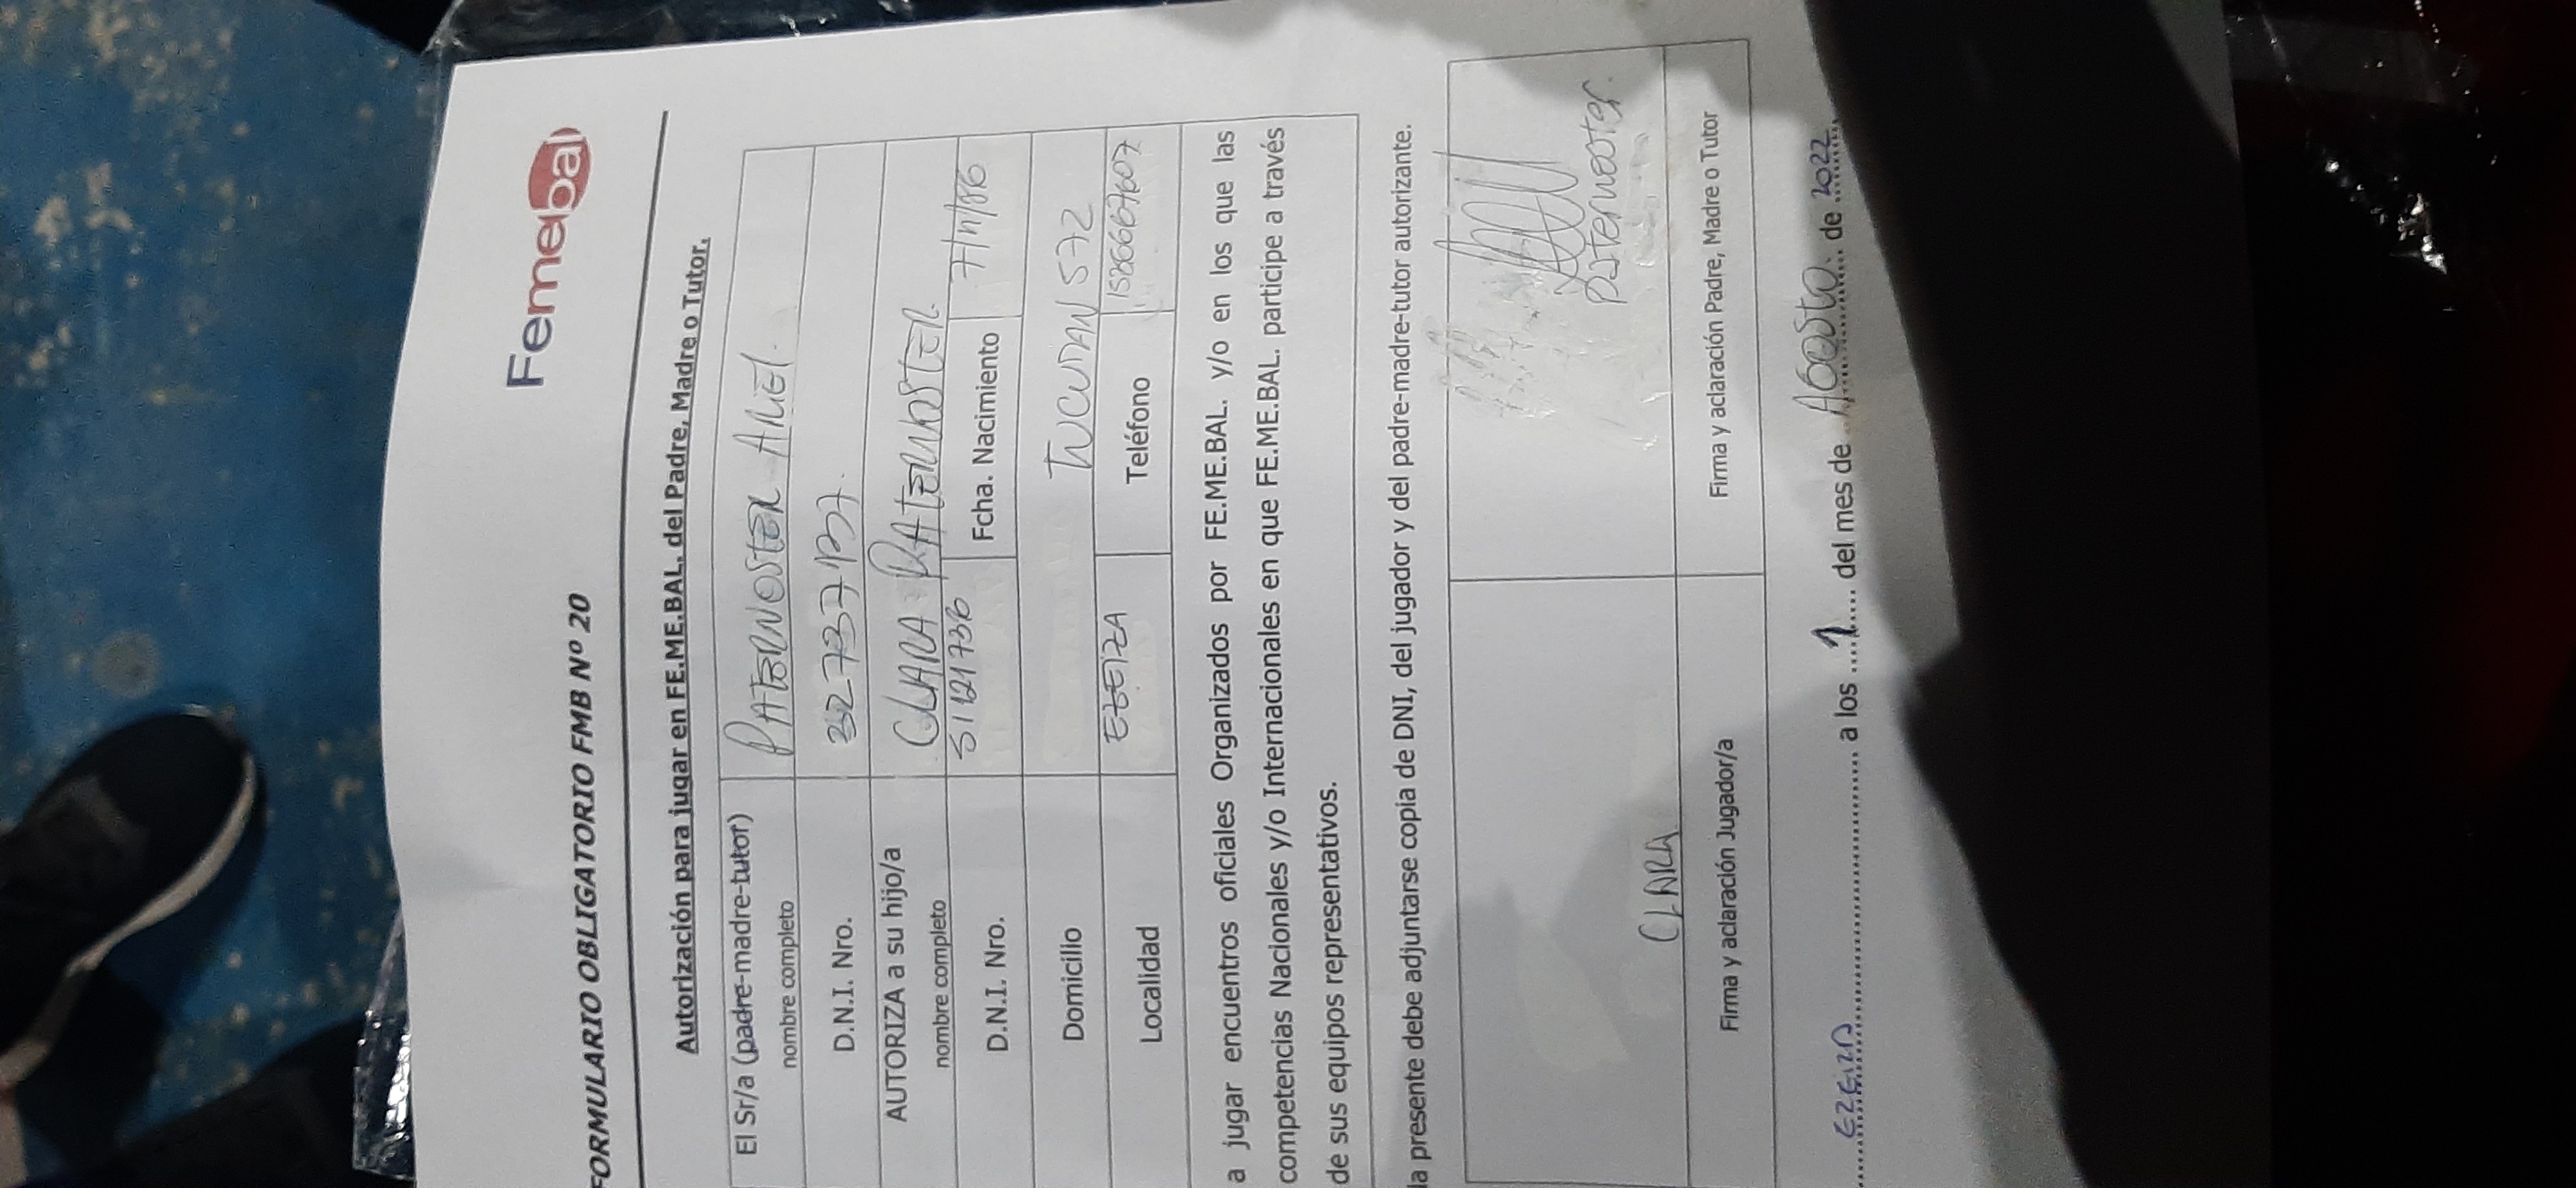 Femebal
FORMULARIO OBLIGATORIO FMB Nº 20
Autorización para jugar en FE.ME.BAL. del Padre, Madre o Tutor.
El Sr/a (padre-madre-tutor) nombre completo PATERNOSTER ARIEL.
D.N.I. Nro. 32737137.
AUTORIZA a su hijo/a nombre completo CLARA PATERNOSTER
D.N.I. Nro. 51121736 Fcha. Nacimiento
Domicilio TUCUMAN 572
Localidad EZEIZA Teléfono
a jugar encuentros oficiales Organizados por FE.ME.BAL. y/o en los que las
competencias Nacionales y/o Internacionales en que FE.ME.BAL. participe a través
de sus equipos representativos.
la presente debe adjuntarse copia de DNI, del jugador y del padre-madre-tutor autorizante.
CLARA Paternoster.
Firma y aclaración Jugador/a Firma y aclaración Padre, Madre o Tutor
EZEIZA a los 1 del mes de AGOSTO de 2022